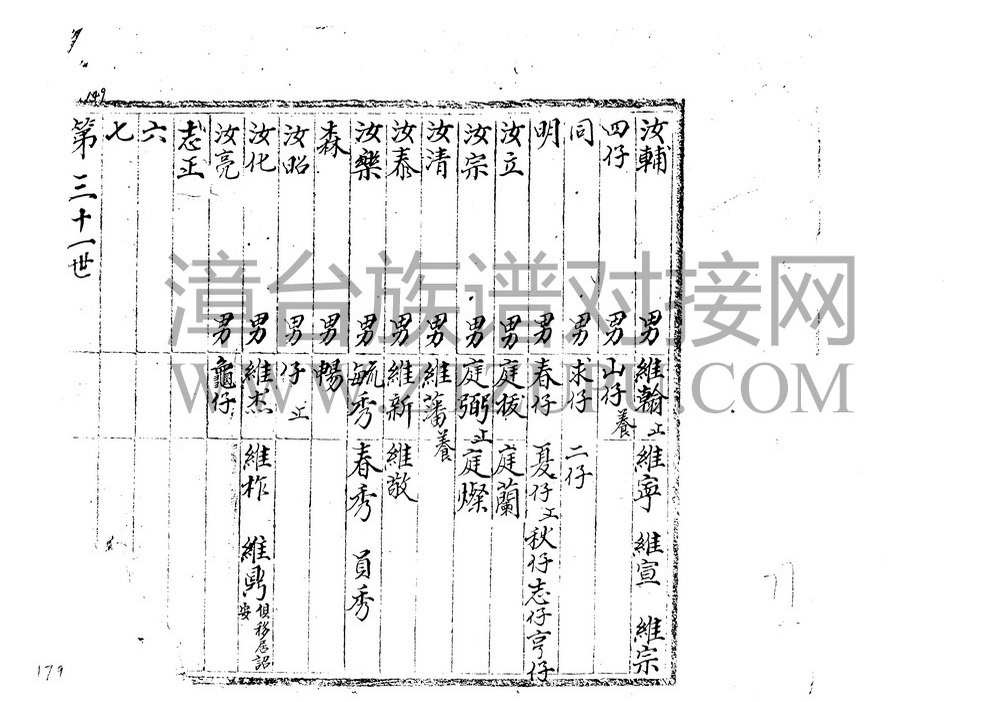 149
汝輔 男 維翰 㐀 維寧 維宣 維宗
四仔 男 山仔 養
同 男 求仔 二仔
明 男 春仔 夏仔 秋仔 志仔 亨仔
汝立 男 庭拔 庭蘭
汝宗 男 庭弼 庭燦
汝清 男 維藩 養
汝泰 男 維新 維敬
汝樂 男 毓秀 春秀 員秀
森 男 暢
汝昭 男 仔
汝化 男 維杰 維柞 維鼎 但移居詔安
汝亮 男 龜仔
志正
六
七
第三十一世
漳台族谱对接网
WWW.ZTZUPU.COM
179